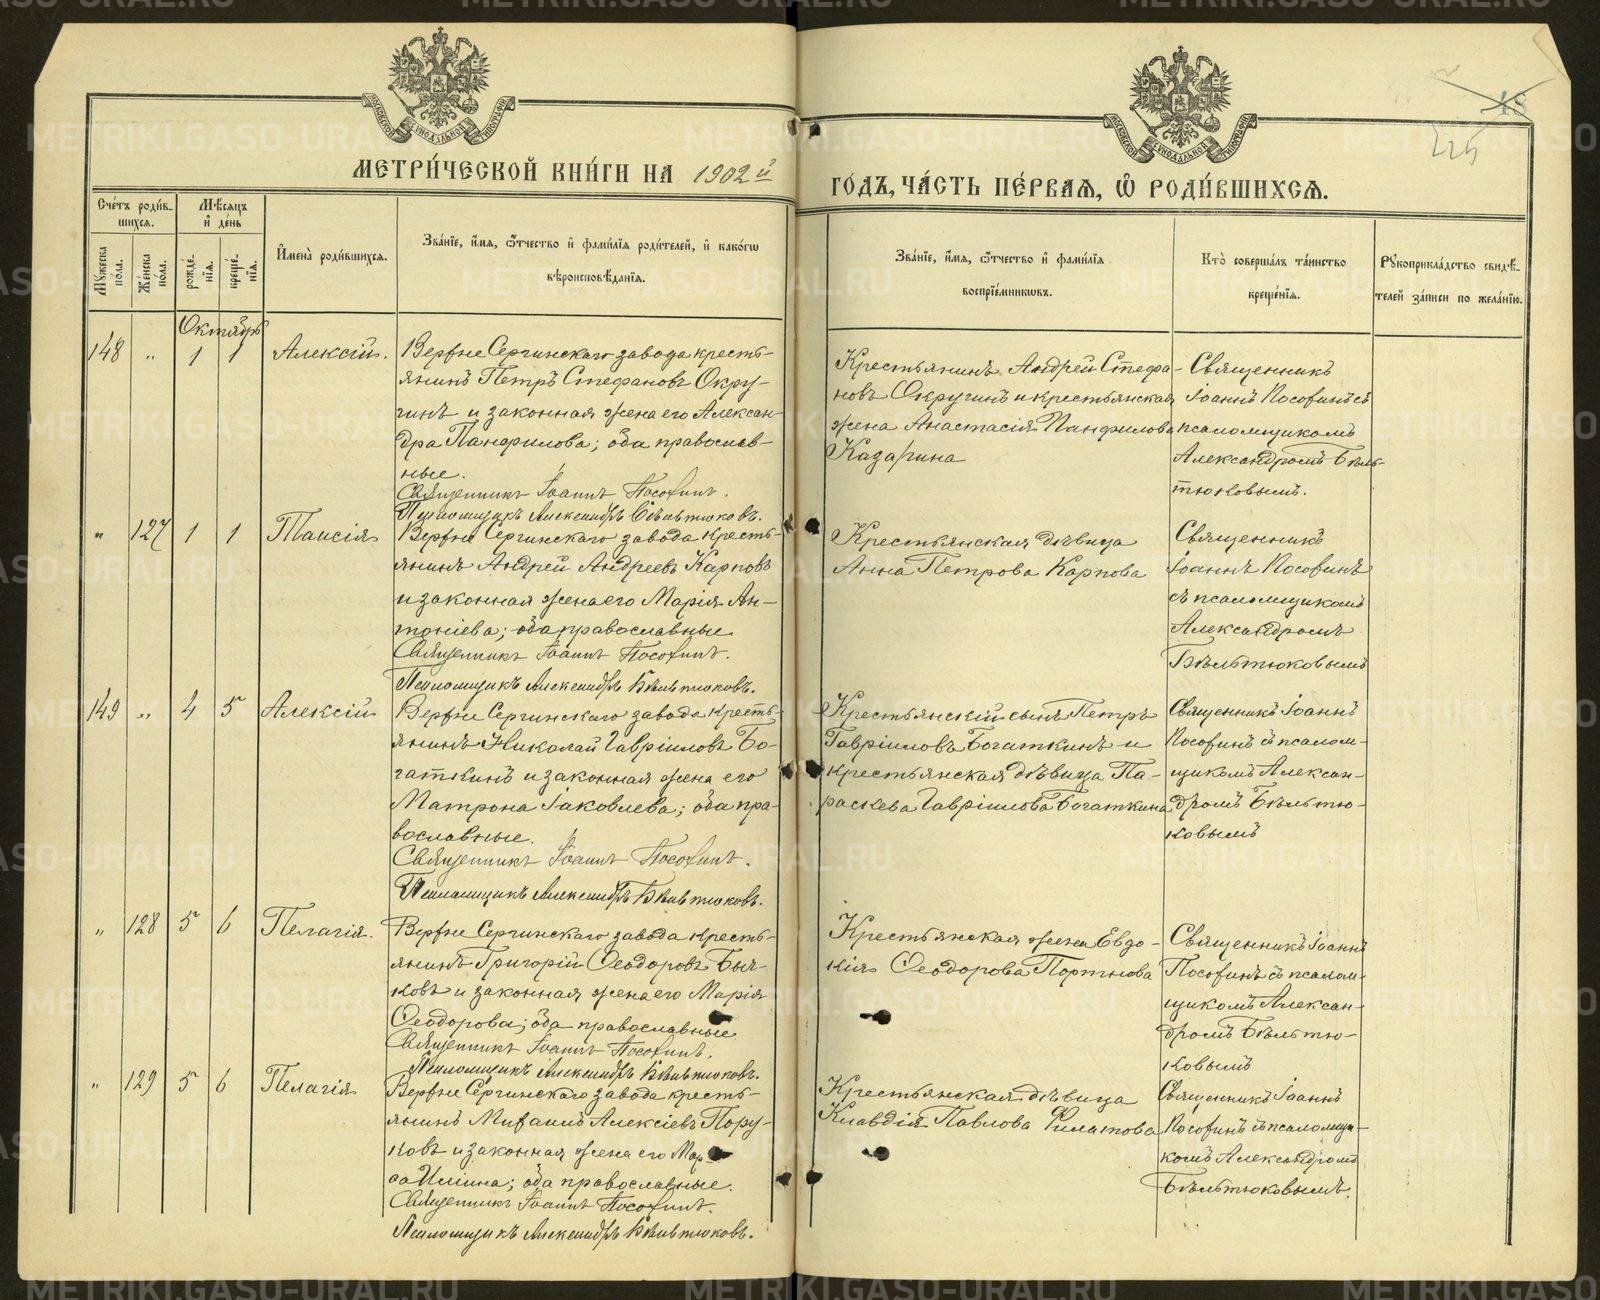 МЕТРИЧЕСКОЙ КНИГИ НА 1902й
ГОДЪ, ЧАСТЬ ПЕРВАЯ, Ѡ РОДИВШИХСЯ.
225
Счетъ родившихся.
Мужеска пола.
Женска пола.
Мѣсяцъ и день
рожденія.
крещенія.
Имена родившихся.
Званіе, имя, отчество и фамилія родителей, и какогѡ
вѣроисповѣданія.
Званіе, имя, отчество и фамилія
воспріемниковъ.
Кто совершалъ таинство
крещенія.
Рукоприкладство свидѣ-
телей записи по желанію.
Октябрь
148 " 1 1 Алексій.
Верхне Сергинскаго завода кресть-
янинъ Петръ Стефановъ Окру-
гинъ и законная жена его Алексан-
дра Панфилова; оба православ-
ные.
Священникъ Іоаннъ Посохинъ.
Псаломщикъ Александръ Бѣльтюковъ.
Крестьянинъ Андрей Стефа-
новъ Округинъ и крестьянская
жена Анастасія Панфилова
Казарина
Священникъ
Іоаннъ Посохинъ съ
псаломщикомъ
Александромъ Бѣль-
тюковымъ.
" 127 1 1 Таисія
Верхне Сергинскаго завода кресть-
янинъ Андрей Андреевъ Карповъ
и законная жена его Марія Ан-
тоніева; оба православные
Священникъ Іоаннъ Посохинъ.
Псаломщикъ Александръ Бѣльтюковъ.
Крестьянская дѣвица
Анна Петрова Карпова
Священникъ
Іоаннъ Посохинъ
съ псаломщикомъ
Александромъ
Бѣльтюковымъ
149 " 4 5 Алексій
Верхне Сергинскаго завода кресть-
янинъ Николай Гавріиловъ Бо-
гаткинъ и законная жена его
Матрона Іаковлева; оба пра-
вославные.
Священникъ Іоаннъ Посохинъ.
Псаломщикъ Александръ Бѣльтюковъ.
Крестьянскій сынъ Петръ
Гавріиловъ Богаткинъ и
крестьянская дѣвица Па-
раскева Гавріилова Богаткина
Священникъ Іоаннъ
Посохинъ съ псалом-
щикомъ Алексан-
дромъ Бѣльтю-
ковымъ
" 128 5 6 Пелагія.
Верхне Сергинскаго завода кресть-
янинъ Григорій Ѳеодоровъ Бы-
ковъ и законная жена его Марія
Ѳеодорова; оба православные
Священникъ Іоаннъ Посохинъ.
Псаломщикъ Александръ Бѣльтюковъ.
Крестьянская жена Евдо-
кія Ѳеодорова Портнова
Священникъ Іоаннъ
Посохинъ съ псалом-
щикомъ Алексан-
дромъ Бѣльтю-
ковымъ
" 129 5 6 Пелагія
Верхне Сергинскаго завода кресть-
янинъ Михаилъ Алексіевъ Пору-
ковъ и законная жена его
Ильина; оба православные.
Священникъ Іоаннъ Посохинъ.
Псаломщикъ Александръ Бѣльтюковъ.
Крестьянская дѣвица
Клавдія Павлова Филатова
Священникъ Іоаннъ
Посохинъ съ псаломщи-
комъ Александромъ
Бѣльтюковымъ.
METRIKI.GASO-URAL.RU